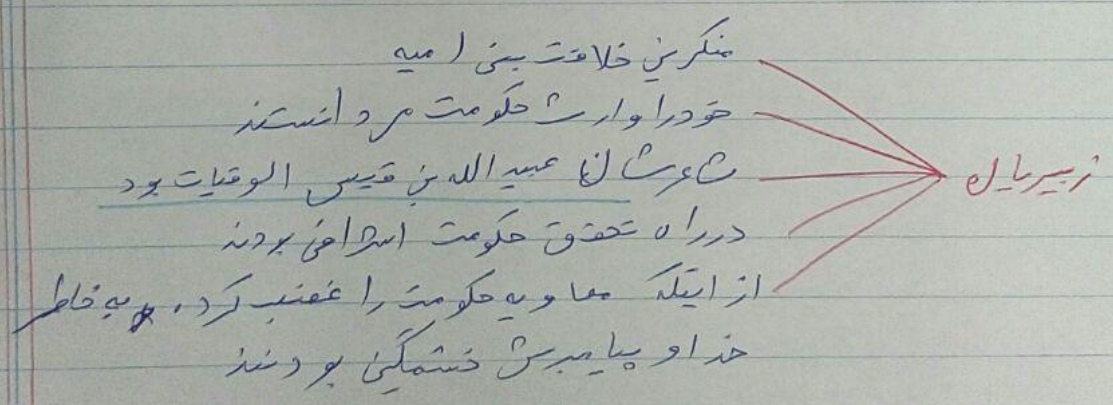 زبیریان
منکرین خلافت بنی امیه
خود را وارث حکومت می دانستند
شاعرشان عبیدالله بن قیس الوقیات بود
در راه تحقق حکومت اشرافی بودند
از اینکه معاویه حکومت را غضب کرد، به خاطر
خدا و پیامبرش خشمگین بودند